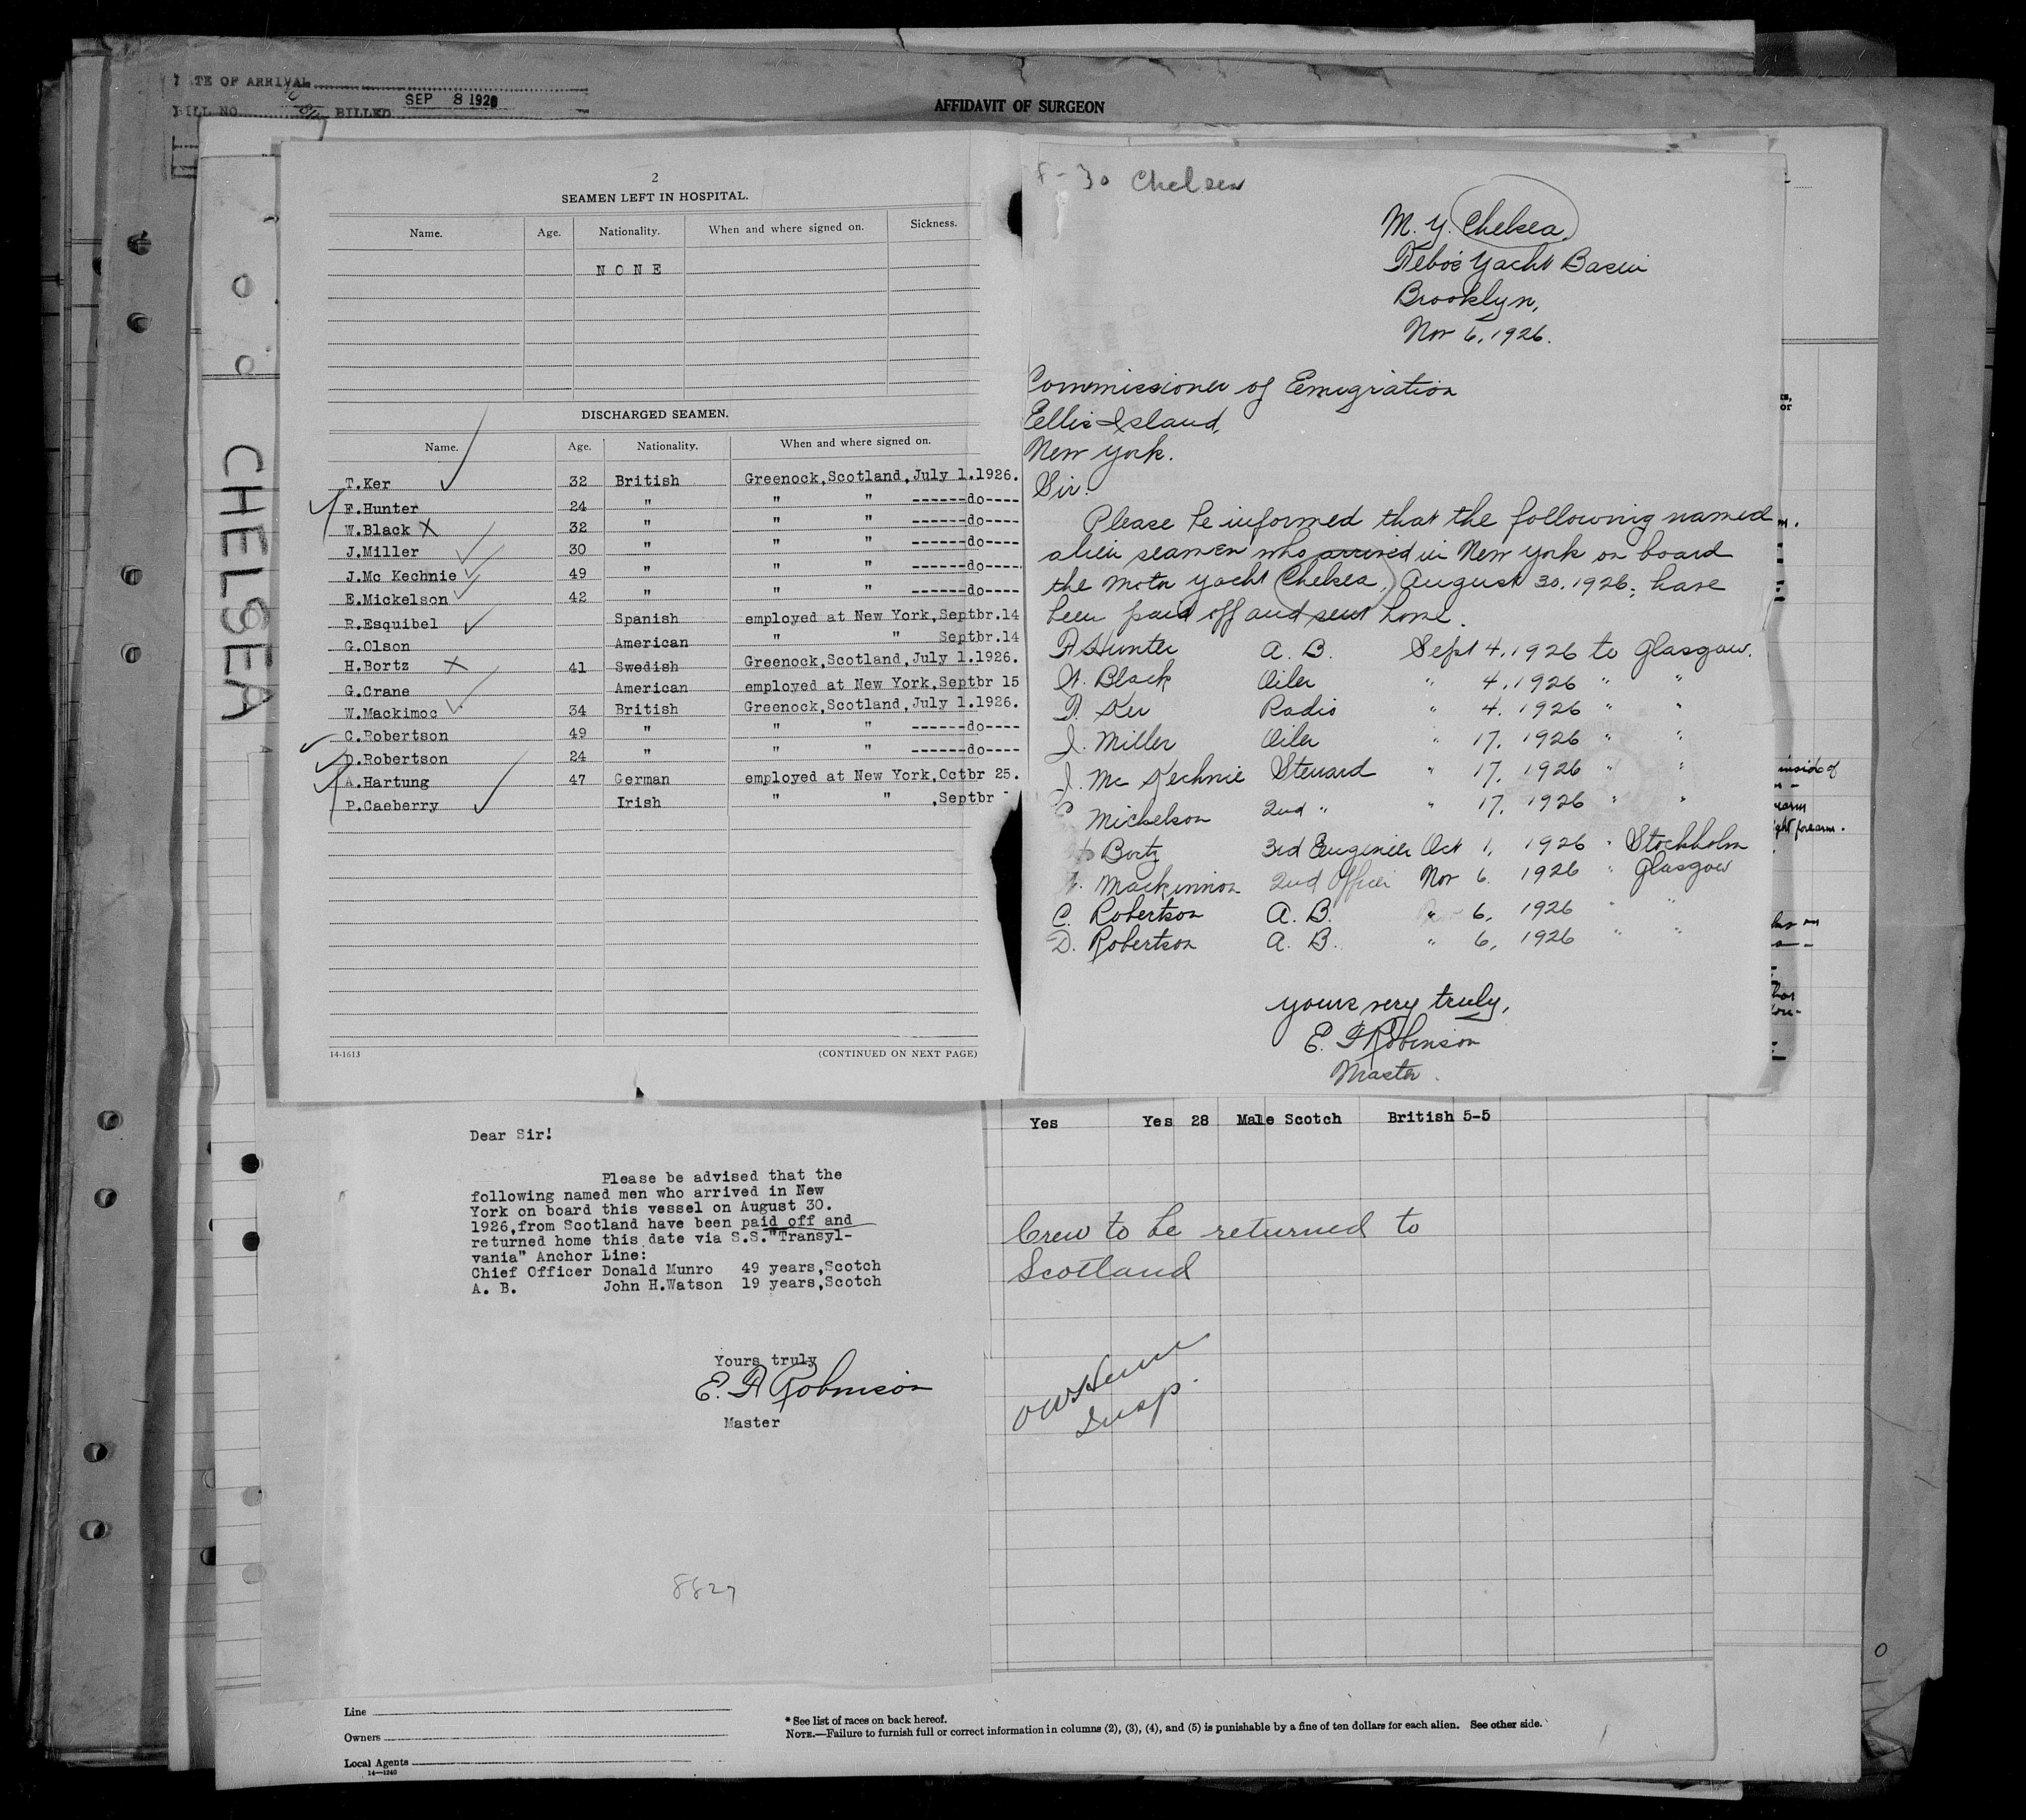 DATE OF ARRIVAL
BILL NO. BILLED SEP 8 1926
AFFIDAVIT OF SURGEON
CHELSEA
2
SEAMEN LEFT IN HOSPITAL.
Name. Age. Nationality. When and where signed on. Sickness.
NONE
DISCHARGED SEAMEN.
Name. Age. Nationality. When and where signed on.
T.Ker 32 British Greenock,Scotland,July 1.1926.
F.Hunter 24 " " " ------do----
W.Black X 32 " " " ------do----
J.Miller 30 " " " ------do----
J.Mc Kechnie 49 " " " ------do----
E.Mickelson 42 " " " ------do----
R.Esquibel Spanish employed at New York,Septbr.14
G.Olson American " " Septbr.14
H.Bortz X 41 Swedish Greenock,Scotland,July 1.1926.
G.Crane American employed at New York,Septbr 15
W.Mackimoc 34 British Greenock,Scotland,July 1.1926.
C.Robertson 49 " " " ------do----
D.Robertson 24 " " " ------do----
A.Hartung 47 German employed at New York,Octbr 25.
P.Caeberry Irish " " ,Septbr
14-1613
(CONTINUED ON NEXT PAGE)
8-30 Chelsea
M. Y. Chelsea,
Tebo's Yacht Basin
Brooklyn,
Nov 6, 1926.
Commissioner of Emigration
Ellis Island,
New York.
Sir:
Please be informed that the following named
alien seamen who arrived in New York on board
the Motor Yacht Chelsea, August 30, 1926, have
been paid off and sent home.
F Hunter A. B. Sept 4, 1926 to Glasgow.
W. Black Oiler " 4, 1926 " "
T. Ker Radio " 4, 1926 " "
J. Miller Oiler " 17, 1926 " "
J. Mc Kechnie Steward " 17, 1926 " "
E Mickelson 2nd " " 17, 1926 " "
H Bortz 3rd Engineer Oct 1, 1926 " Stockholm
W. Mackinnon 2nd Officer Nov 6. 1926 " Glasgow
C. Robertson A. B. " 6, 1926 " "
D. Robertson A. B. " 6, 1926 " "
yours very truly,
E. F Robinson
Master.
inside of
forearm.
Dear Sir!
Please be advised that the
following named men who arrived in New
York on board this vessel on August 30.
1926,from Scotland have been paid off and
returned home this date via S.S."Transyl-
vania" Anchor Line:
Chief Officer Donald Munro 49 years,Scotch
A. B. John H.Watson 19 years,Scotch
Yours truly
E. F Robinson
Master
8827
Yes Yes 28 Male Scotch British 5-5
Crew to be returned to
Scotland
Insp.
Line
Owners
Local Agents
14-1240
* See list of races on back hereof.
NOTE.—Failure to furnish full or correct information in columns (2), (3), (4), and (5) is punishable by a fine of ten dollars for each alien. See other side.